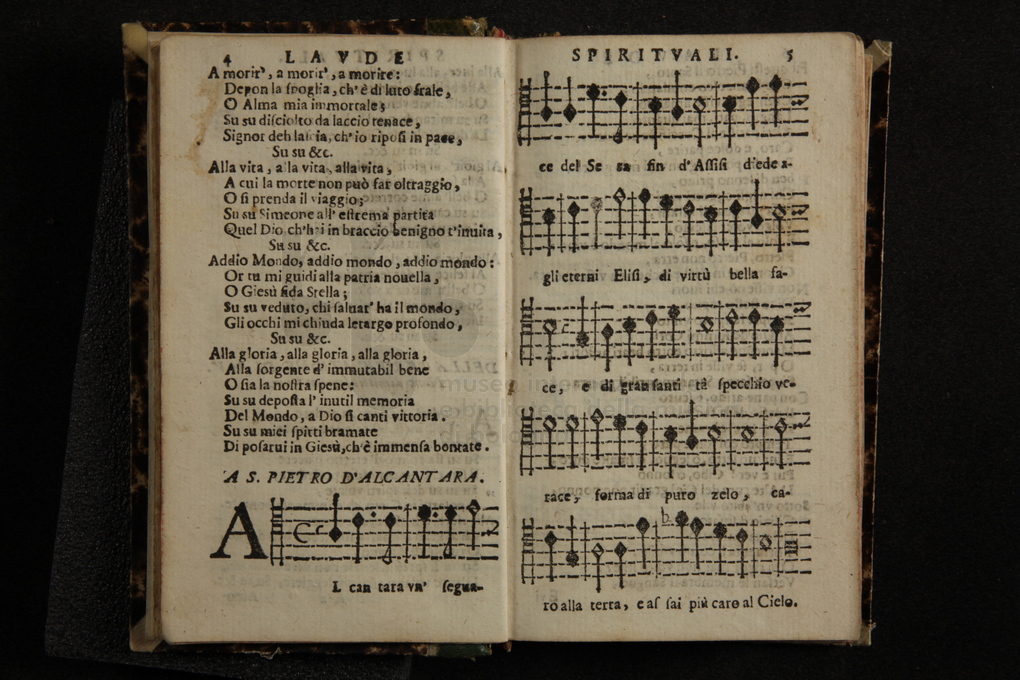 4 LAVDE
A morir', a morir', a morire:
Depon la spoglia, ch' è di luto frale,
O Alma mia immortale;
Su su disciolto da laccio tenace,
Signor deh lascia, ch' io riposi in pace,
Su su &c.
Alla vita, alla vita, alla vita,
A cui la morte non può far oltraggio,
O si prenda il viaggio;
Su su Simeone all' estrema partita
Quel Dio ch'hai in braccio benigno t'inuita,
Su su &c.
Addio Mondo, addio mondo, addio mondo:
Or tu mi guidi alla patria nouella,
O Giesù fida Stella;
Su su veduto, chi saluat' ha il mondo,
Gli occhi mi chiuda letargo profondo,
Su su &c.
Alla gloria, alla gloria, alla gloria,
Alla sorgente d' immutabil bene
O sia la nostra spene:
Su su deposta l' inutil memoria
Del Mondo, a Dio si canti vittoria.
Su su miei spirti bramate
Di posarui in Giesù, ch'è immensa bontate.
A S. PIETRO D'ALCANTARA.
A
L can tara vn' segua-
SPIRITVALI. 5
ce del Se ra fin d' Assisi diede a-
gli eterni Elisi, di virtù bella fa-
ce, e di gran santi tà specchio ve-
race, forma di puro zelo, ca-
ro alla terra, e as sai più caro al Cielo.